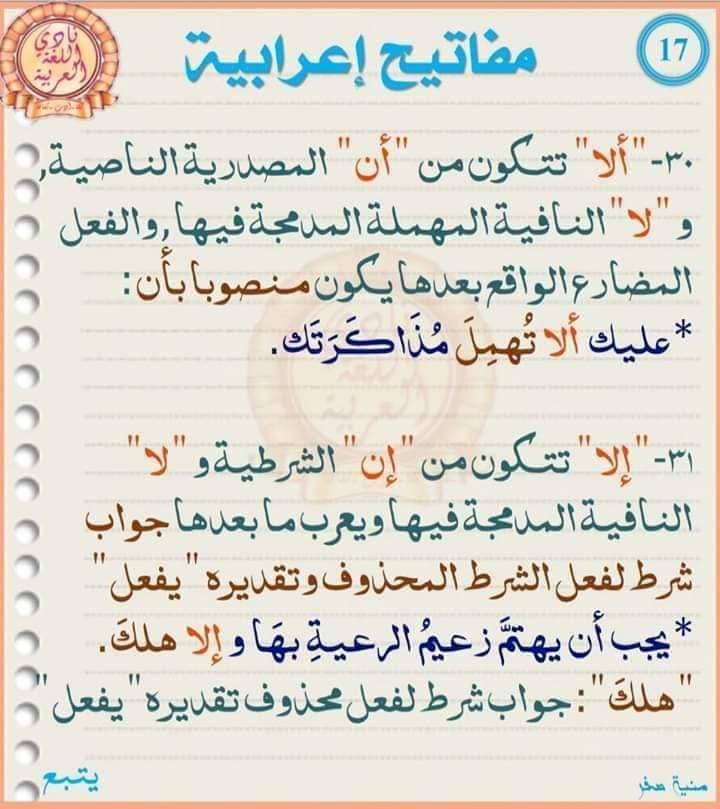 نادي
اللغة
العربية
مفاتيح إعرابية
17
٣٠-"ألا" تتكون من "أن" المصدرية الناصية,
و"لا" النافية المهملة المدمجة فيها, والفعل
المضارع الواقع بعدها يكون منصوبا بأن:
*عليك ألا تُهمِلَ مُذَاكَرَتَك.
٣١-"إلا" تتكون من "إن" الشرطية و "لا"
النافية المدمجة فيها ويعرب ما بعدها جواب
شرط لفعل الشرط المحذوف وتقديره "يفعل"
*يجب أن يهتمَّ زعيمُ الرعيةِ بهَا وإلا هلكَ.
"هلكَ": جواب شرط لفعل محذوف تقديره "يفعل"
يتبع
منية صقر